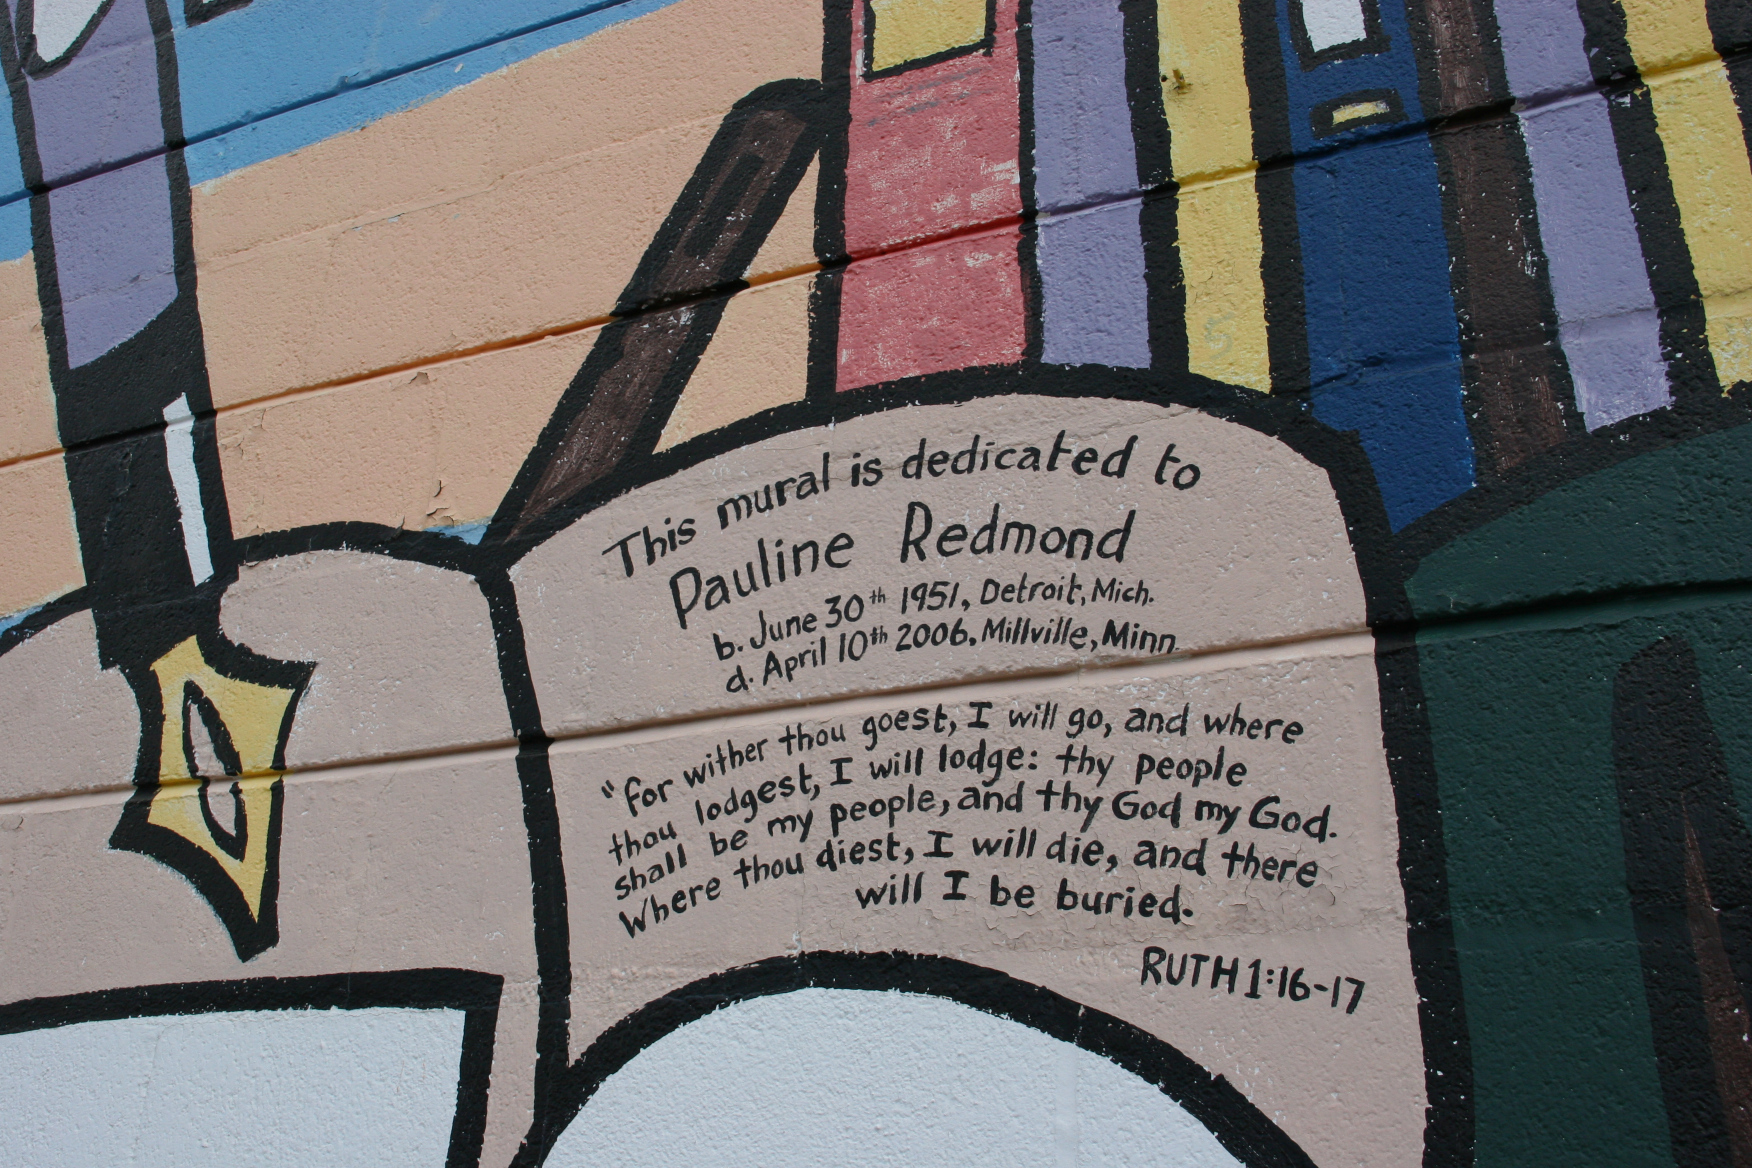 This mural is dedicated to
Pauline Redmond
b. June 30th 1951, Detroit, Mich.
d. April 10th 2006, Millville, Minn.
"for wither thou goest, I will go, and where
thou lodgest, I will lodge: thy people
shall be my people, and thy God my God.
Where thou diest, I will die, and there
will I be buried.
RUTH 1:16-17